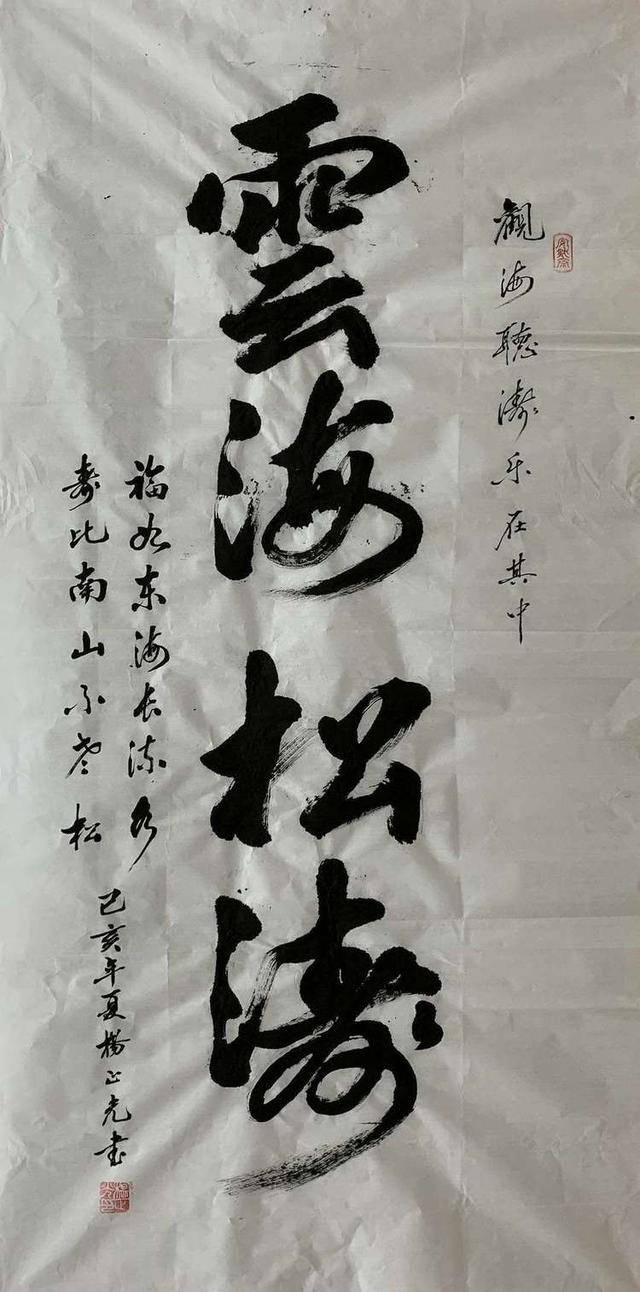 觀海聽濤乐在其中
雲海松濤
福如东海长流水
寿比南山不老松
己亥年夏楊正光書